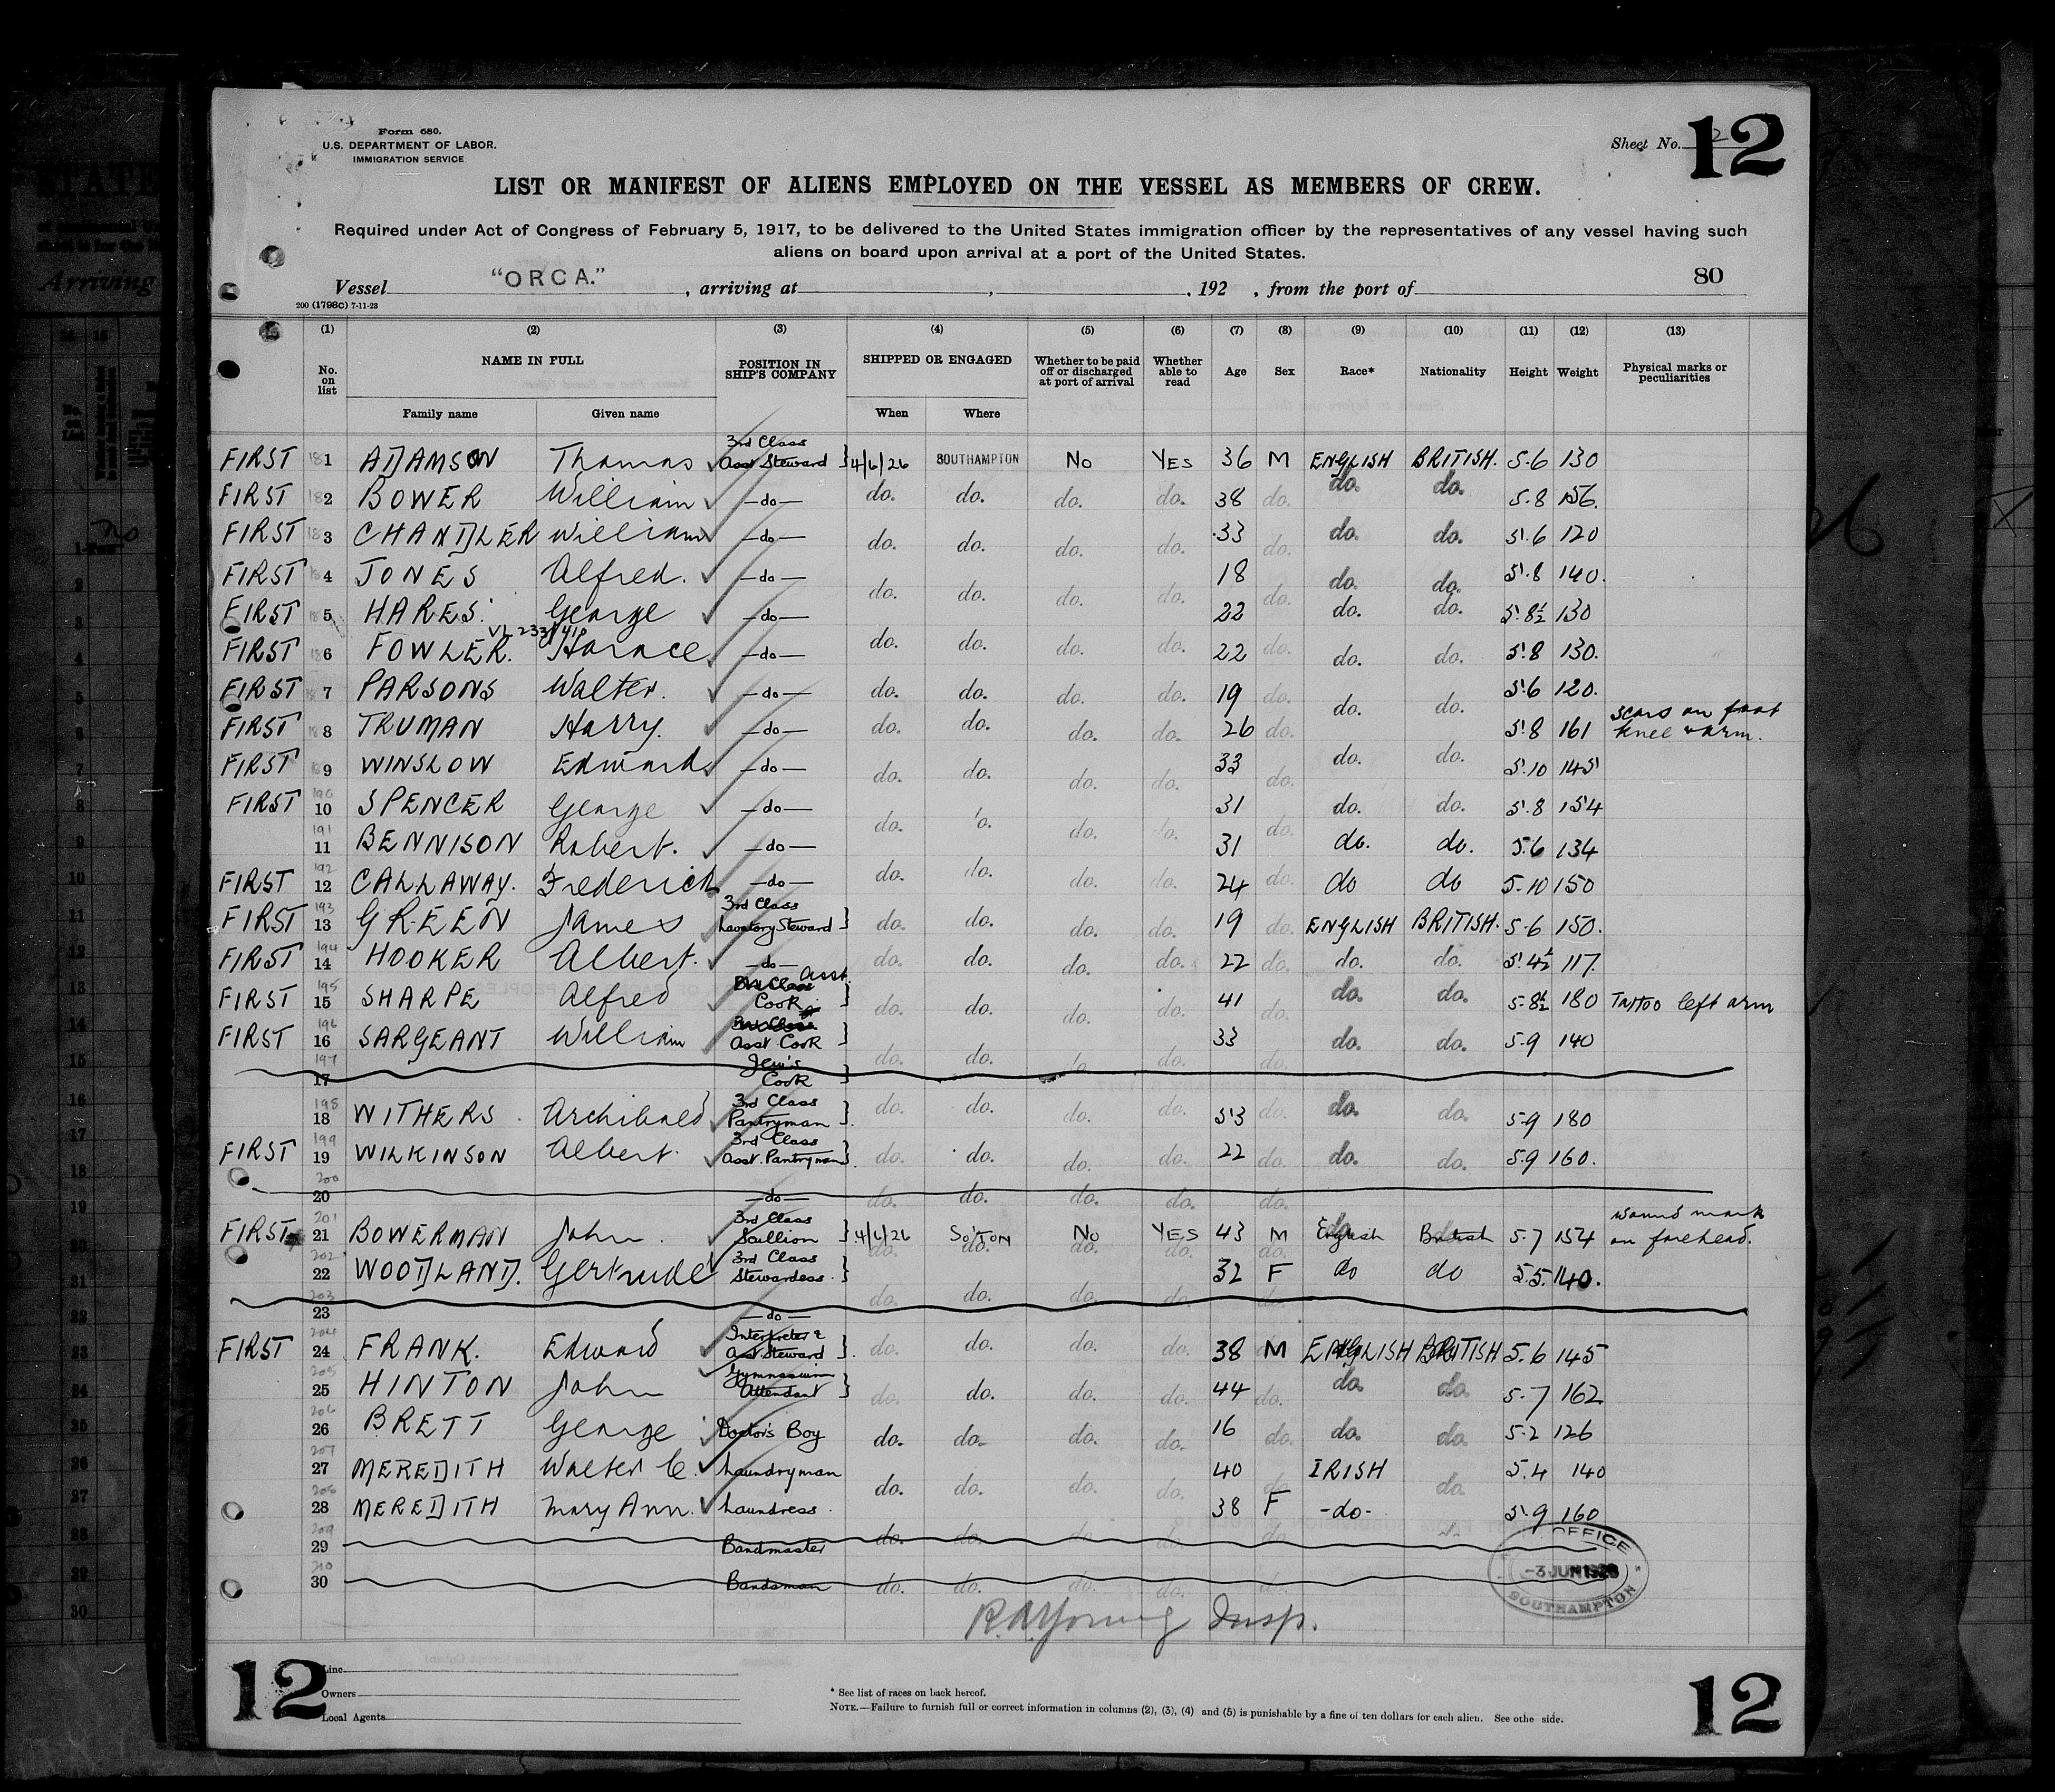 Form 680.
U.S. DEPARTMENT OF LABOR.
IMMIGRATION SERVICE
Sheet No. 2
12
LIST OR MANIFEST OF ALIENS EMPLOYED ON THE VESSEL AS MEMBERS OF CREW.
Required under Act of Congress of February 5, 1917, to be delivered to the United States immigration officer by the representatives of any vessel having such
aliens on board upon arrival at a port of the United States.
80
Vessel "ORCA." , arriving at , , 192 , from the port of
200 (1798C) 7-11-23
(1) (2) (3) (4) (5) (6) (7) (8) (9) (10) (11) (12) (13)
No. on list NAME IN FULL POSITION IN SHIP'S COMPANY SHIPPED OR ENGAGED Whether to be paid off or discharged at port of arrival Whether able to read Age Sex Race* Nationality Height Weight Physical marks or peculiarities
Family name Given name When Where
FIRST 181 ADAMSON Thomas 3rd Class Asst Steward 4/6/26 SOUTHAMPTON No YES 36 M ENGLISH BRITISH. 5-6 130
FIRST 182 BOWER William -do- do. do. do. do. 38 do. do. do. 5.8 156.
FIRST 183 CHANDLER William -do- do. do. do. do. 33 do. do. do. 5'.6 120
FIRST 184 JONES Alfred. -do- do. do. do. do. 18 do. do. do. 5'.8 140.
FIRST 185 HARES. George -do- 22 do. do. 5'.8½ 130
FIRST 186 FOWLER. Horace -do- do. do. do. do. 22 do. do. do. 5'.8 130.
FIRST 187 PARSONS Walter. -do- do. do. do. do. 19 do. do. do. 5'.6 120.
FIRST 188 TRUMAN Harry. -do- do. do. do. do. 26 do. 5'.8 161 scars on foot knee & arm.
FIRST 189 WINSLOW Edward -do- do. do. do. do. 33 do. do. do. 5'.10 145
FIRST 190 10 SPENCER George -do- do. do. do. do. 31 do. do. do. 5'.8 154
191 11 BENNISON Robert. -do- 31 do. do. 5.6 134
FIRST 192 12 CALLAWAY. Frederick -do- do. do. do. do. 24 do. do do 5.10 150
FIRST 193 13 GREEN James 3rd Class Lavatory Steward do. do. do. do. 19 do. ENGLISH BRITISH. 5-6 150.
FIRST 194 14 HOOKER Albert. -do- do. do. do. do. 22 do. do. do. 5'.4½ 117.
FIRST 195 15 SHARPE Alfred Asst. Cook do. do. do. do. 41 do. do. do. 5-8½ 180 Tattoo left arm
FIRST 196 16 SARGEANT William Asst Cook 33 do. do. 5.9 140
197 17 Jew's Cook do. do. do. do.
198 18 WITHERS Archibald 3rd Class Pantryman do. do. do. do. 53 do. do. do. 5-9 180
FIRST 199 19 WILKINSON Albert. 3rd Class Asst. Pantryman do. do. do. do. 22 do. do. do. 5.9 160.
200 20 -do- do. do. do. do. do.
FIRST 201 21 BOWERMAN John 3rd Class Scullion 4/6/26 So'TON No YES 43 M English British 5.7 154 wound mark on forehead.
202 22 WOODLAND. Gertrude 3rd Class Stewardess. do. do. do. do. 32 F do do 5.5. 140.
203 23 -do- do. do. do. do.
FIRST 204 24 FRANK. Edward Interpreter & Asst. Steward do. do. do. do. 38 M ENGLISH BRITISH 5.6 145
205 25 HINTON John Gymnasium Attendant do. do. do. do. 44 do. do. do. 5-7 162
206 26 BRETT George Doctor's Boy do. do. do. do. 16 do. do. do. 5.2 126
207 27 MEREDITH Walter C. Laundryman 40 IRISH 5.4 140
208 28 MEREDITH Mary Ann. Laundress. do. do. do. do. 38 F -do- do. 5'.9 160
209 29 Bandmaster do. do. do. do.
210 30 Bandsman do. do. do. do.
OFFICE
-3 JUN 1926
SOUTHAMPTON
R.A. Young Insp.
12
Line
Owners
Local Agents
* See list of races on back hereof.
NOTE.—Failure to furnish full or correct information in columns (2), (3), (4) and (5) is punishable by a fine of ten dollars for each alien. See othe side.
12